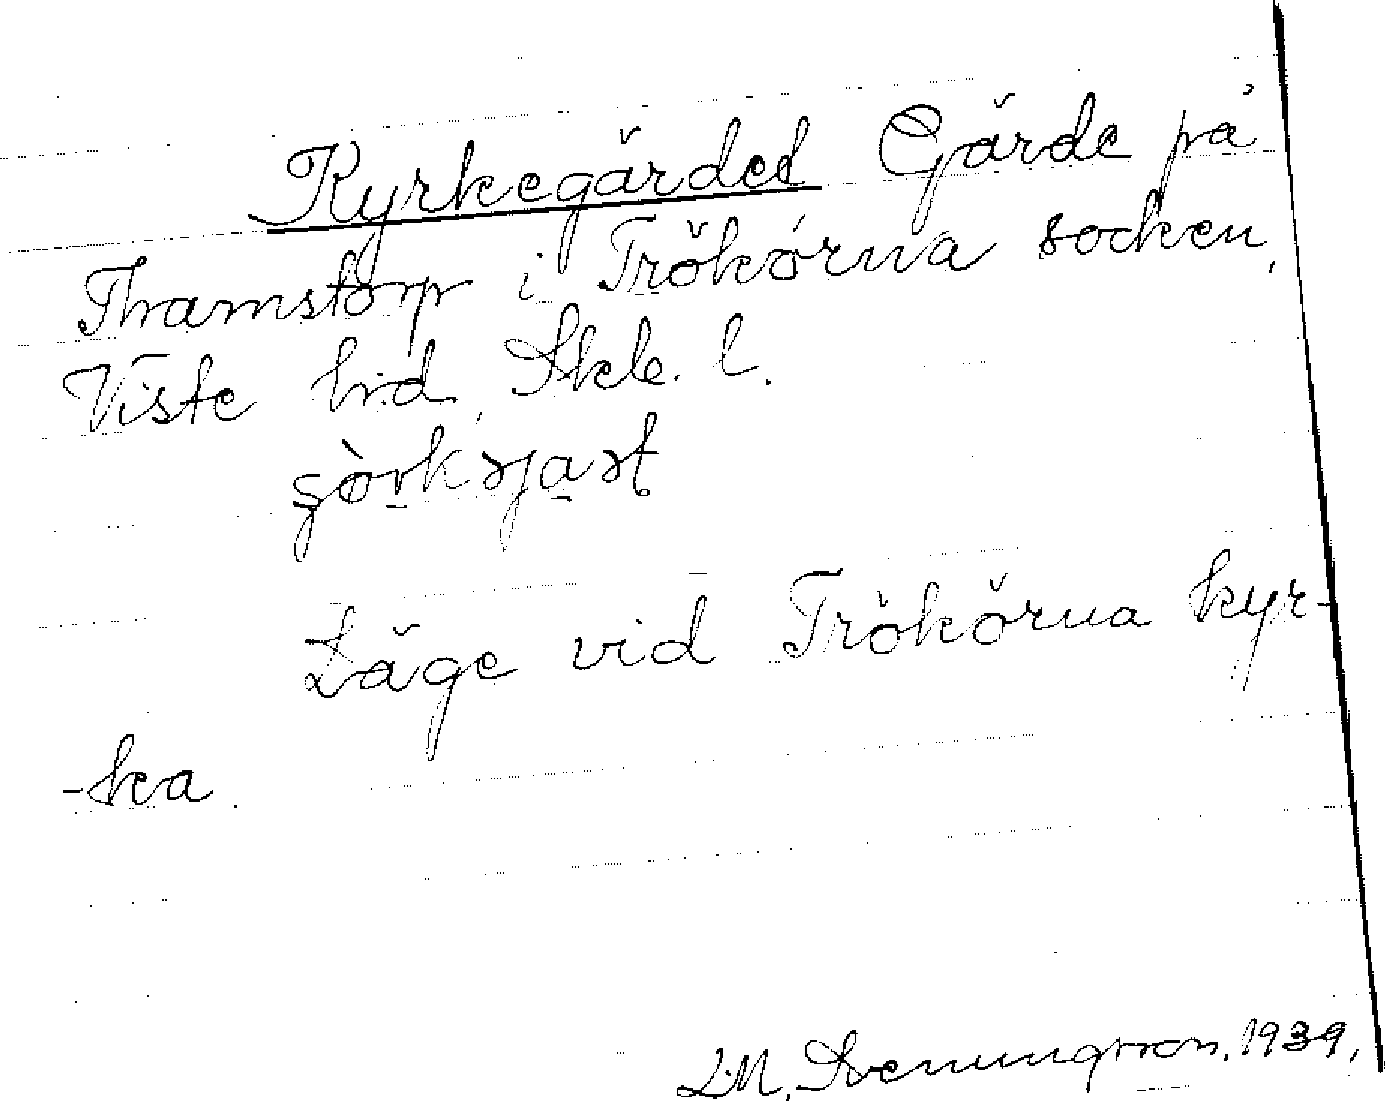 Kyrkegärdet Gärde på
Thamstorp i Trökörna socken,
Viste hd, Skb. l.
Läge vid Trökörna kyr-
-ka.
L.M. Svenungsson, 1939,